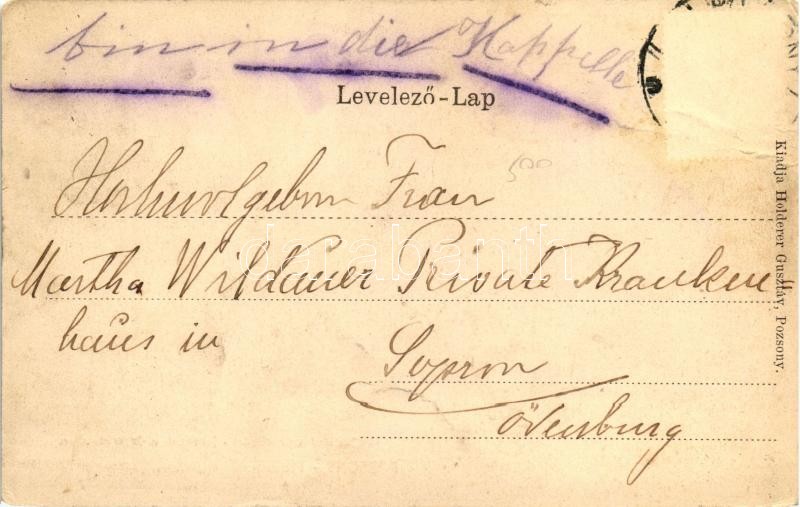 bin in die Kappelle
Levelező-Lap
500
Hochwolgeborn Frau
Martha Wildauer Private Kranken
haus in
Sopron
Ödenburg
Kiadja Holderer Gusztáv, Pozsony.
darabanth